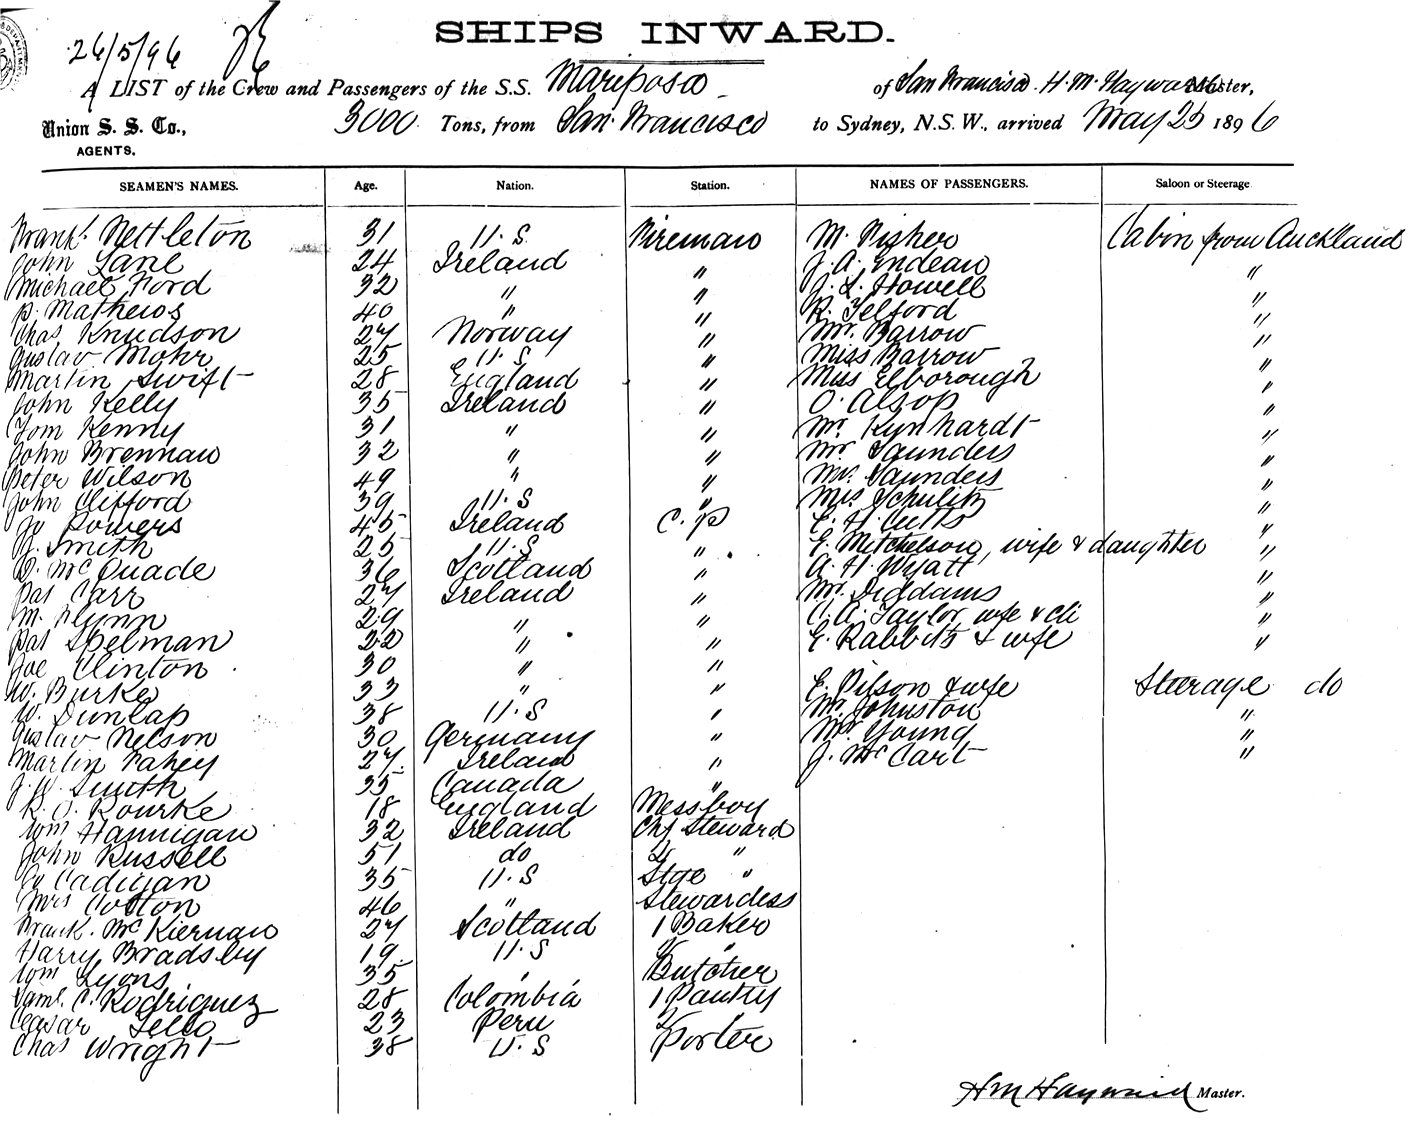 SHIPS INWARD.
26/5/96
A LIST of the Crew and Passengers of the S.S. Mariposa of San Francisco. H. M. Hayward Master,
Union S. S. Co., 3000 Tons, from San Francisco to Sydney, N.S.W., arrived May 25 1896
AGENTS.
SEAMEN'S NAMES. Age. Nation. Station. NAMES OF PASSENGERS. Saloon or Steerage
Frank. Nettleton 31 U.S Fireman M. Fisher Cabin from Auckland
John Lane 24 Ireland " J. A. Endean "
Michael Ford 32 " " J. L. Howell "
P. Mathews 40 " " R. Telford "
Chas Knudson 27 Norway " Mr. Barrow "
Gustav Mohr 25 U.S " Miss Barrow "
Martin Swift 28 England " Miss Elborough "
John Kelly 35 Ireland " O. Alsop "
Tom Kenny 31 " " Mr. Kynhardt "
John Brennan 32 " " Mr Saunders "
Peter Wilson 49 " " Mrs. Saunders "
John Clifford 39 U.S " Mrs Schulitz "
Jo Powers 45 Ireland C. P E. H. Cutts "
J. Smith 25 U.S " E. Mitchelson, wife & daughter "
D. McQuade 36 Scotland " A. H. Wyatt "
Pat Carr 27 Ireland " Mr. Diddams "
M. Flynn 29 " " C. A. Taylor, wfe & chi "
Pat Spelman 22 " " E. Rabbits & wife "
Joe Clinton 30 " "
W. Burke 33 " " E. Pilson & wife Steerage do
W. Dunlap 38 U.S " Mr. Johnston "
Gustav Nelson 30 Germany " Mr. Young "
Martin Fahey 27 Ireland " J. McCart "
J. W. Smith 35 Canada "
R. O. Rourke 18 England Messboy
Wm Hannigan 32 Ireland Chf Steward
John Russell 51 do 2 "
Jo Cadigan 35 U.S Stge "
Mrs Cotton 46 " Stewardess
Frank. McKiernan 27 Scotland 1 Baker
Harry Bradsby 19 U.S 2 "
Wm Lyons 35 " Butcher
Saml. C. Rodriguez 28 Colombia 1 Pantry
Ceasar Tello 23 Peru 2 "
Chas Wright 38 U.S Porter
HM Hayward Master.